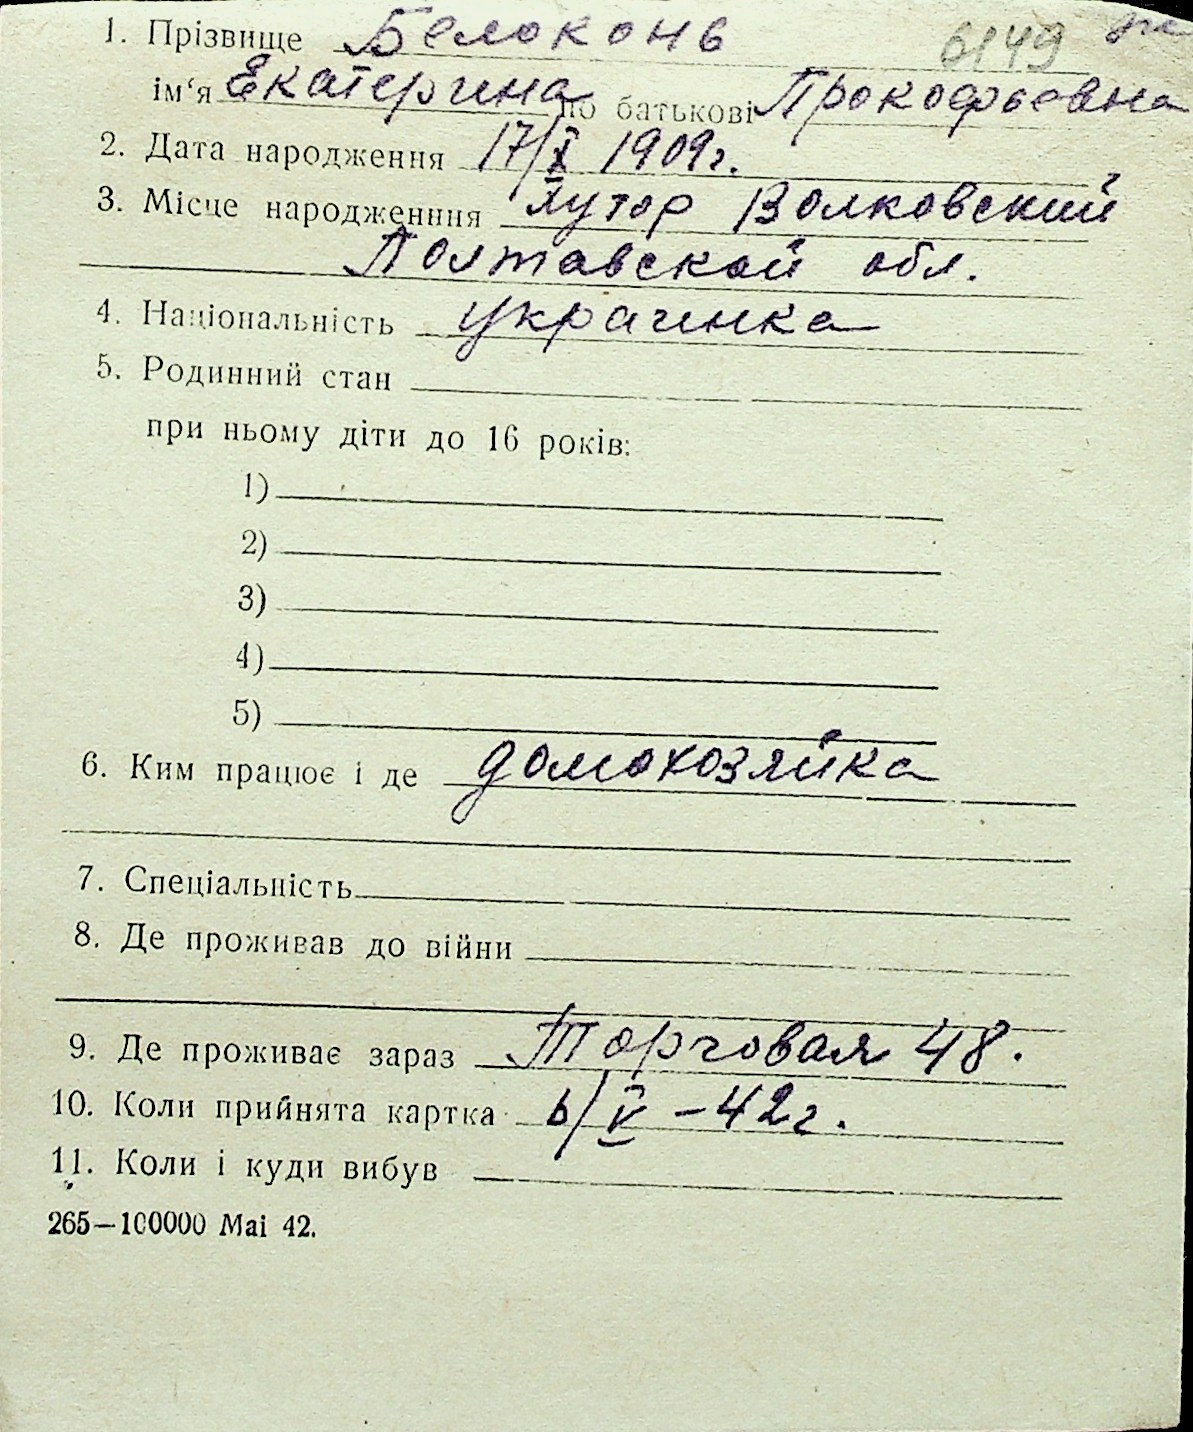 1. Прізвище Белоконь 6149
ім‘я Екатерина по батькові Прокофьевна
2. Дата народження 17/X 1909г.
3. Місце народженння Хутор Волковский
Полтавской обл.
4. Національність украинка
5. Родинний стан
при ньому діти до 16 років:
1)
2)
3)
4)
5)
6. Ким працює і де домохозяйка
7. Спеціальність
8. Де проживав до війни
9. Де проживає зараз Торговая 48.
10. Коли прийнята картка 6/V –42г.
11. Коли і куди вибув
265—100000 Маі 42.